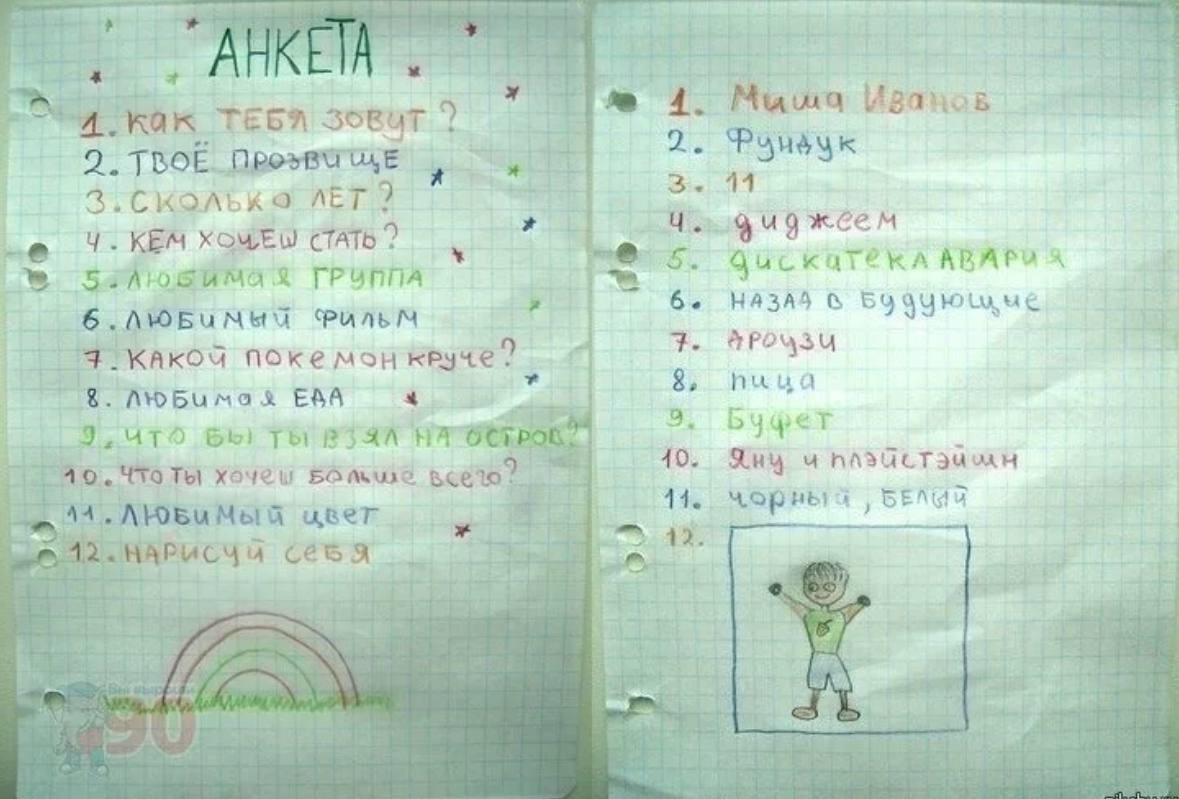 АНКЕТА
1. КАК ТЕБЯ ЗОВУТ?
2. ТВОЁ ПРОЗВИЩЕ
3. СКОЛЬКО ЛЕТ?
4. КЕМ ХОЧЕШ СТАТЬ?
5. ЛЮБИМАЯ ГРУППА
6. ЛЮБИМЫЙ ФИЛЬМ
7. КАКОЙ ПОКЕМОН КРУЧЕ?
8. ЛЮБИМАЯ ЕДА
9. ЧТО БЫ ТЫ ВЗЯЛ НА ОСТРОВ?
10. ЧТО ТЫ ХОЧЕШ БОЛЬШЕ ВСЕГО?
11. ЛЮБИМЫЙ ЦВЕТ
12. НАРИСУЙ СЕБЯ
90
1. Миша Иванов
2. Фундук
3. 11
4. диджеем
5. дискатека АВАРИЯ
6. НАЗАД В Будующие
7. Ароузи
8. пица
9. Буфет
10. Яну и плэйстэйшн
11. чорный, БЕЛЫЙ
12.